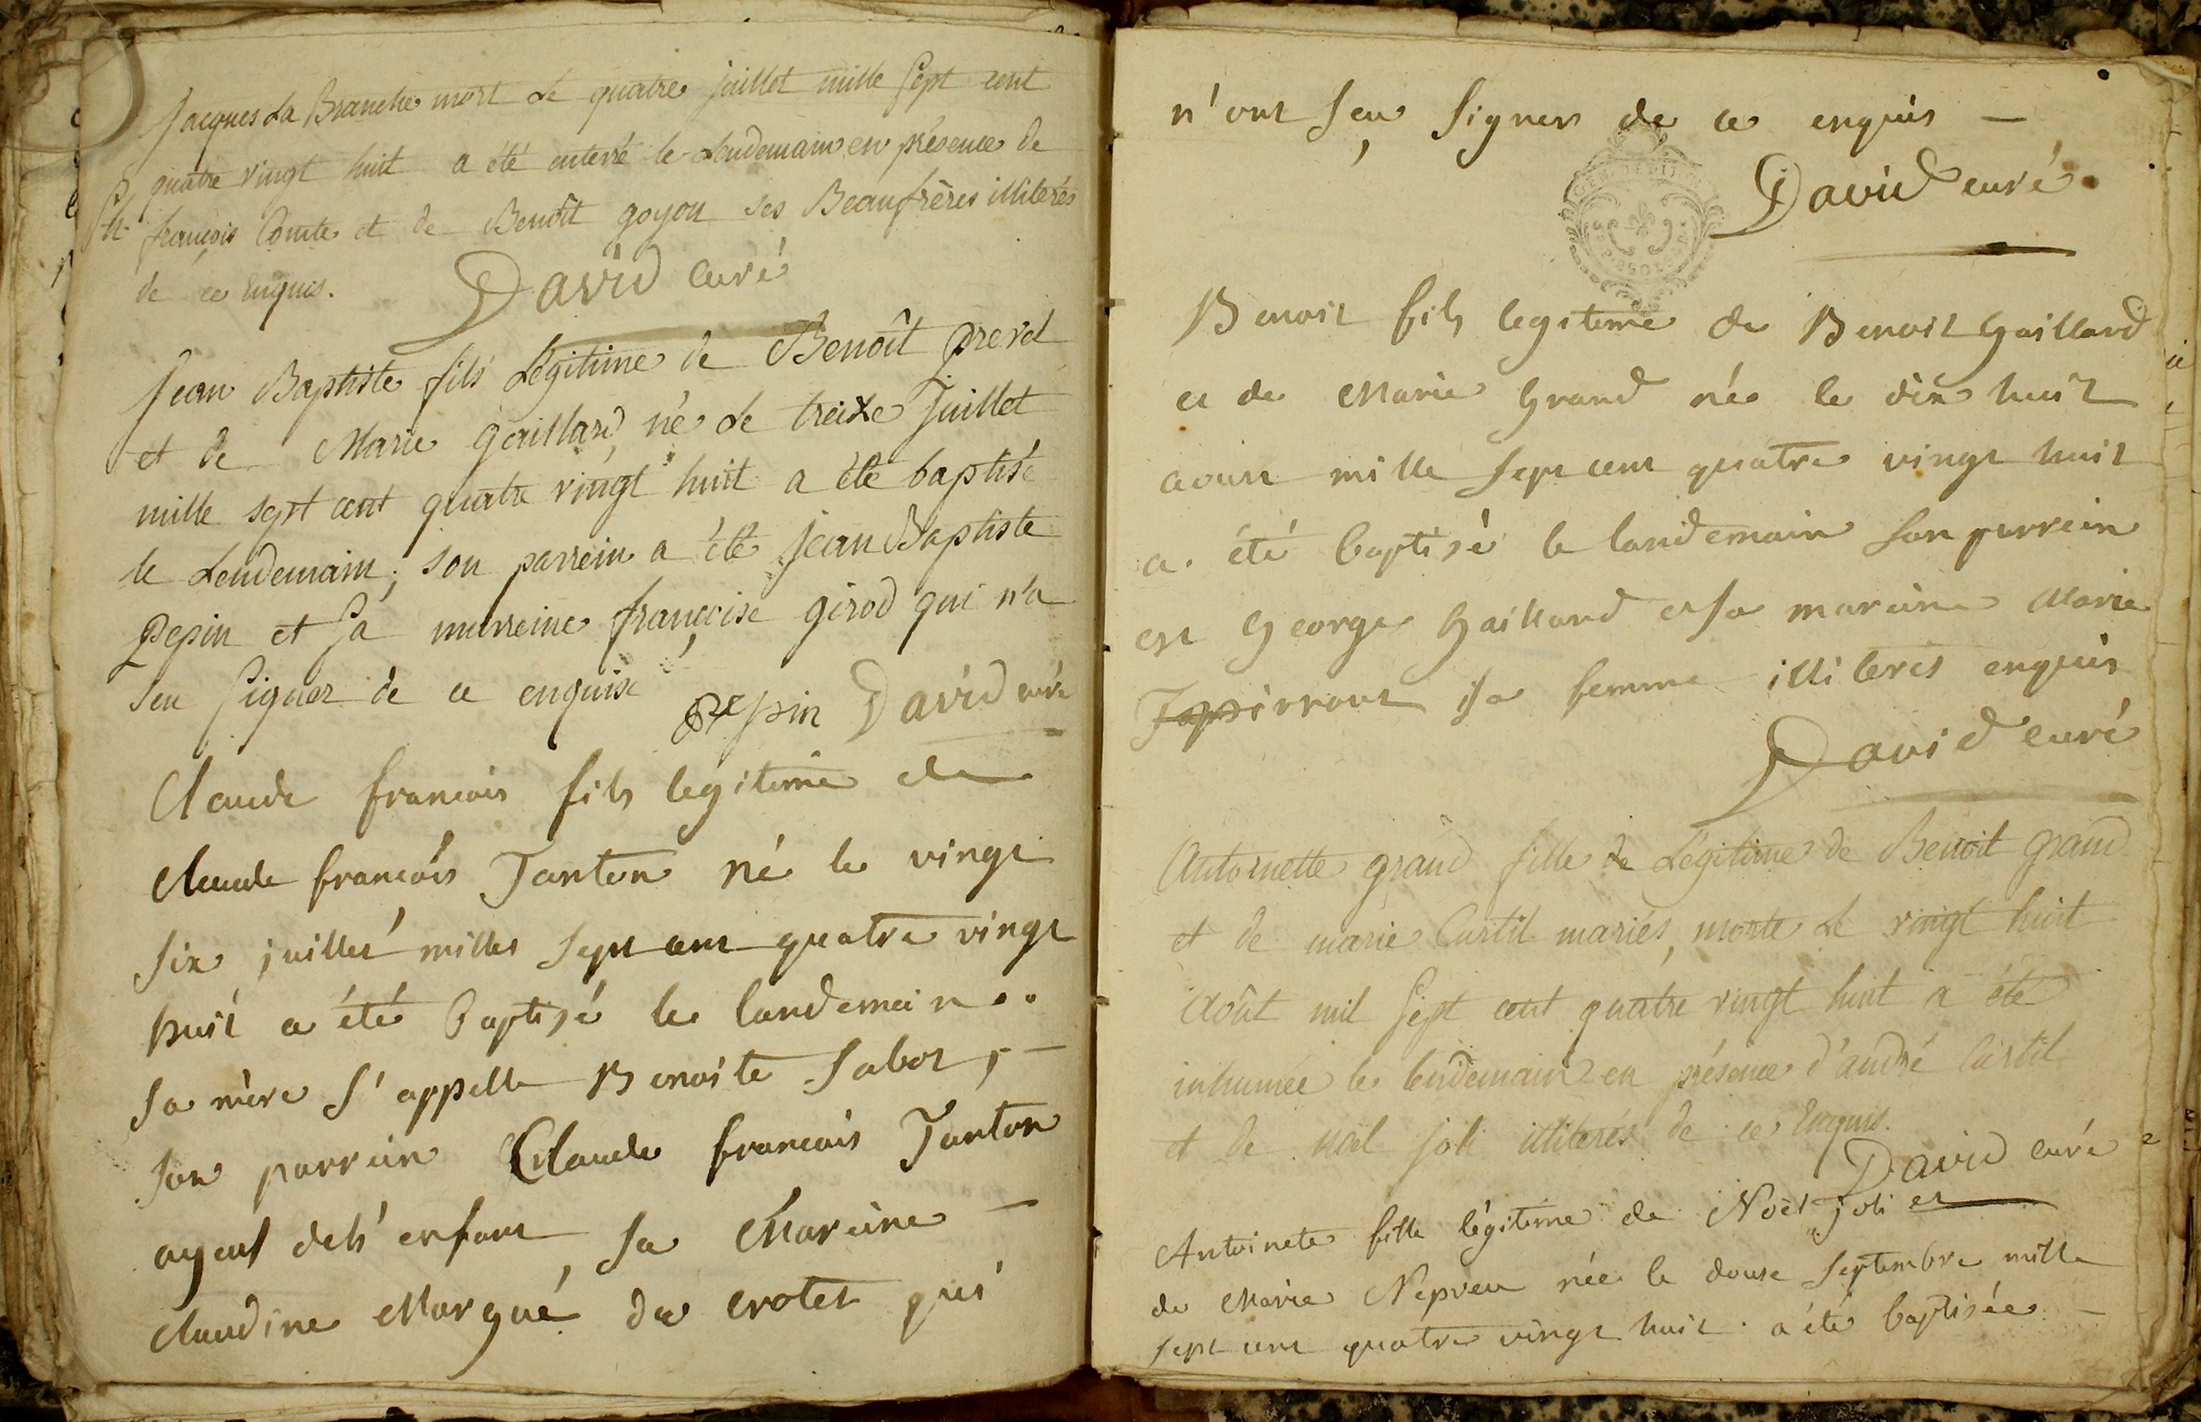 Jacques La Branche mort Le quatre juillet mille sept cent
quatre vingt huit a été enterré le Lendemain en présence de
françois Comte et de Benoît goyon ses Beaufrères illiterés
de ce Enquis.
David curé
Jean Baptiste fils Légitime de Benoît prevel
et de Marie Gaillard, né Le treize Juillet
mille sept cent quatre vingt huit a été baptisé
le Lendemain; son parrein a été Jean Baptiste
Pepin et sa marreine françoise girod qui n'a
seu signer de ce enquise
Pepin David curé
Claude francois fils legitime de
claude françois Tanton né le vingt
six juillet milles sept cent quatre vingt
huit a été Baptisé le landemain..
sa mère s'appelle Benoite Sabot, -
son parrein Claude francois Tanton
ayeul deh' enfant, sa Mareine -
claudine Margué de crotet qui
n'ont seu signer de ce enquis -
David curé.
Benoit fils legitime de Benoit Gaillard
et de Marie Grand née le dix huit
aoust mille sept cent quatre vingt huit
a. été baptisé le landemain son parrein
est George Gaillard et sa mareine Marie
sa femme illiterés enquis
David curé
Antoinette grand fille de Légitime de Benoit grand
et de marie Curtil mariés, morte Le vingt huit
Août mil sept cent quatre vingt huit a été
inhumée le lendemain en présence d'andré Curtil
et de noël joli illiterés de ce Enquis.
David curé
Antoinete fille légitime de Noël joli et
de Marie Nepveu née le douse septembre mille
sept cent quatre vingt huit. a été baptisée -